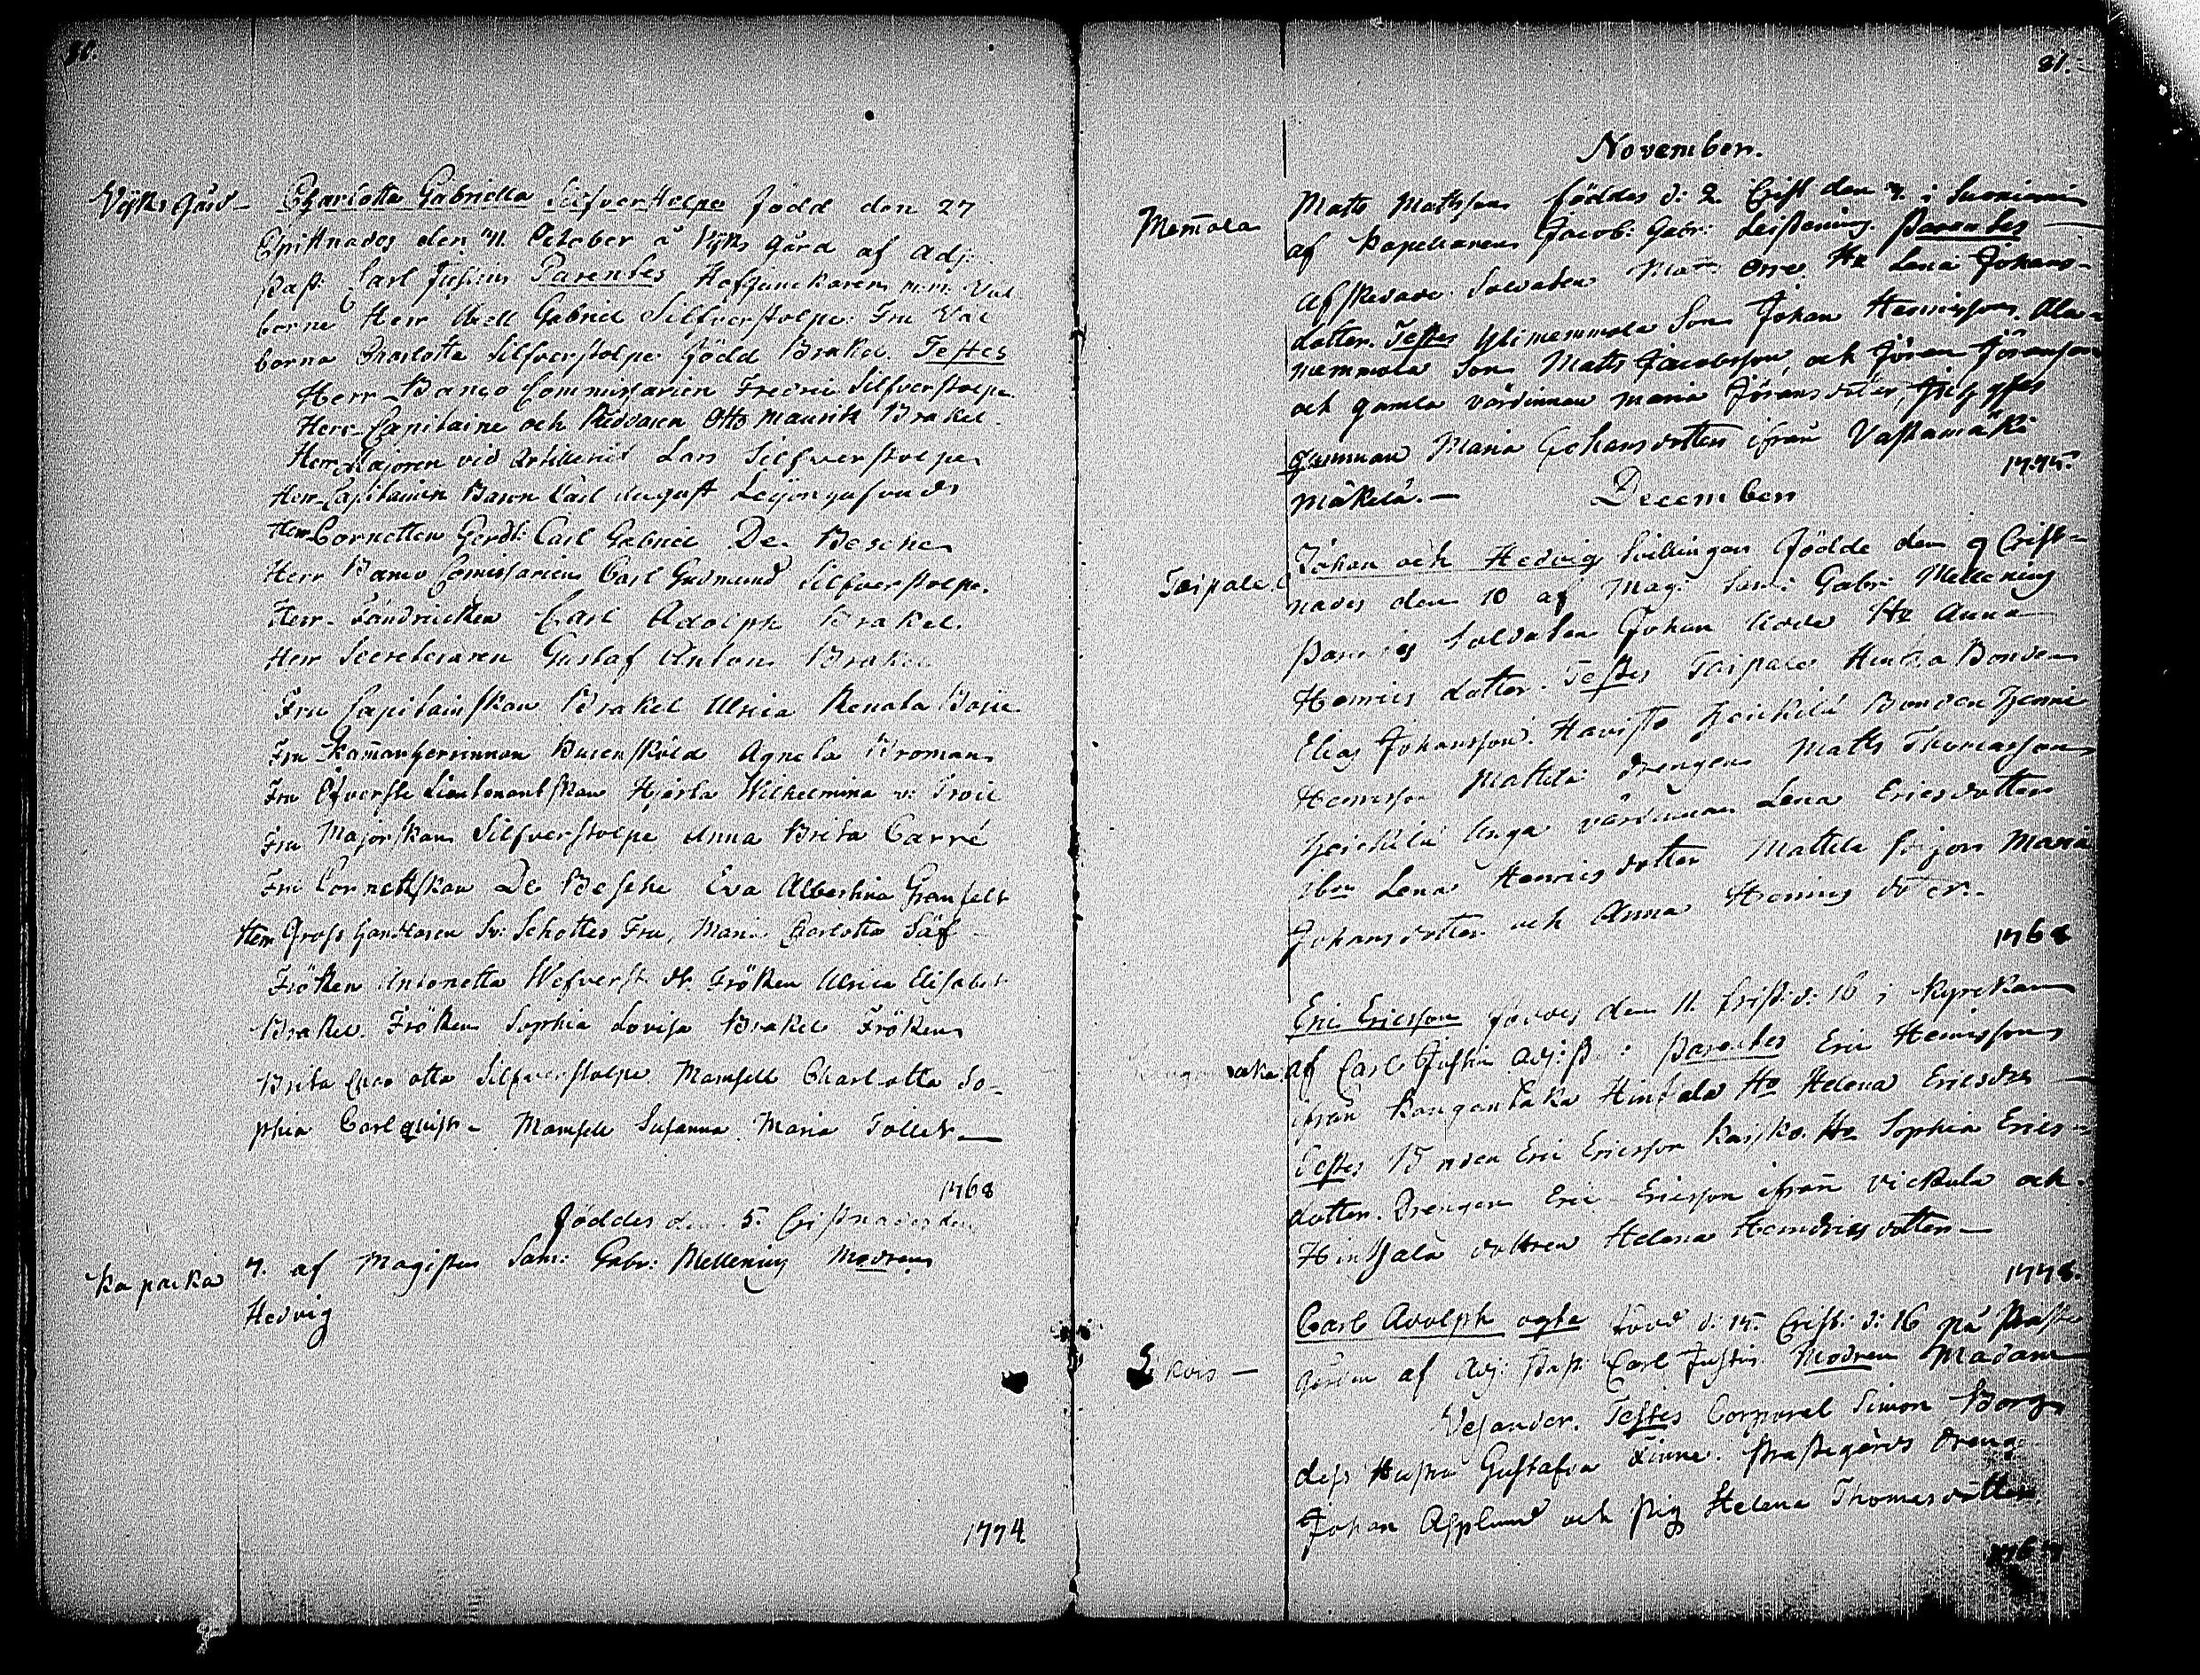 80.
Vijks gård - Charlotta Gabriella Silfverstolpe född den 27
Cristnades den 31. October å Vijks gård af adj:
Past: Carl Justin Parentes Hofjunckaren m.m. Väl
borne Herr Axell Gabriel Silfverstolpe Fru Väl
borna Charlotta Silfverstolpe född Brakel. Testes
Herr Banco Commissarien Fredric Silfverstolpe
Herr Capitaine och Riddaren Otto Mauritz Brakel.
Herr Majoren vid Artilleriet Lars Silfverstolpe
Herr Capitainen Baron Carl August Leijonhufvud
Herr Cornetten Carl Gabriel De Besche
Herr Banco Comissarien Carl Gudmund Silfverstolpe.
Herr Fändricken Carl Adolph Brakel.
Herr Secreteraren Gustaf Anton Brakel
Fru Capitainskan Brakel Ulrica Renata Boije
Fru Kamarherrinnan Adelsköld Agneta Broman
Fru Öfverste Lieutenantskan Hjärta Wilhelmina v: Troil
Fru Majorskan Silfverstolpe Anna Brita Carré
Fru Cornettskan De Besche Eva Albertina Granfelt
Herr Grosshandlaren Sv: Schottes Fru, Maria Charlotta Säf
Fröken Antonetta Fröken Ulrica Elisabet
Brakel. Fröken Sophia Lovisa Brakel Fröken
Brita Charlotta Silfverstolpe. Mamsell Charlotta So-
phia Carlquist - Mamsell Susanna Maria Tollet -
1768
föddes den 5. Cristnades den
Kaparka 7. af Magister Sam: Gabr: Mellenius Modren
Hedvig
1774.
81.
November.
Memola Matts Mattsson föddes d: 2. Crist den 7. i Suoniemi
af Kapellanen Jacob: Gabr: Leistenius. Parentes
afskedade Soldaten Matts Orre. Hu Lena Johans-
dotter. Testes Ylimemmola Son Johan Henricsson. Ala-
memmola Son Matts Jacobsson och Jöran Jöransson
och gamla värdinnan Maria Jöransdoter,
gumman Maria Johansdotter ifrån Vastamäki
mäkelä. -
1775.
December
Taipale Johan och Hedvig tvillingar födde den 9 Crist-
nades den 10 af Mag: Sam: Gabr: Mellenius
Parentes Soldaten Johan Hu Anna
Henrics dotter. Testes Taipale Bonden
Elias Johansson. Havisto Heickilä Bonden Henric
Henricsson Mattila drengen Matts Thomasson
Heickilä Unga värdinnan Lena Ericsdotter
Lena Henricsdotter Mattila pigor Maria
Johansdotter och Anna Henrics dter. -
1768
Eric Ericsson föddes den 11. Crist: d: 16 i Kyrckan
af Carl Justin adj: P: Parentes Eric Henricsson
ifrån Kangantaka Hintsala Hu Helena Ericsdr -
Testes Bonden Eric Ericsson Kaisko. Hu Sophia Erics
dotter. Drengen Eric Ericsson ifrån Vickula och
Hintsala dottren Helena Hendricsdotter -
1778.
Carl Adolph ogta född d: 15. Crist: d: 16 på Prästе
gården af Adj: Past: Carl Justin. Modren Madam
Vesander. Testes Corporal Simon Borg
dess Hustru Gustafva Linne. Prästegårds dreng
Johan Asplund och Pig Helena Thomasdotter.